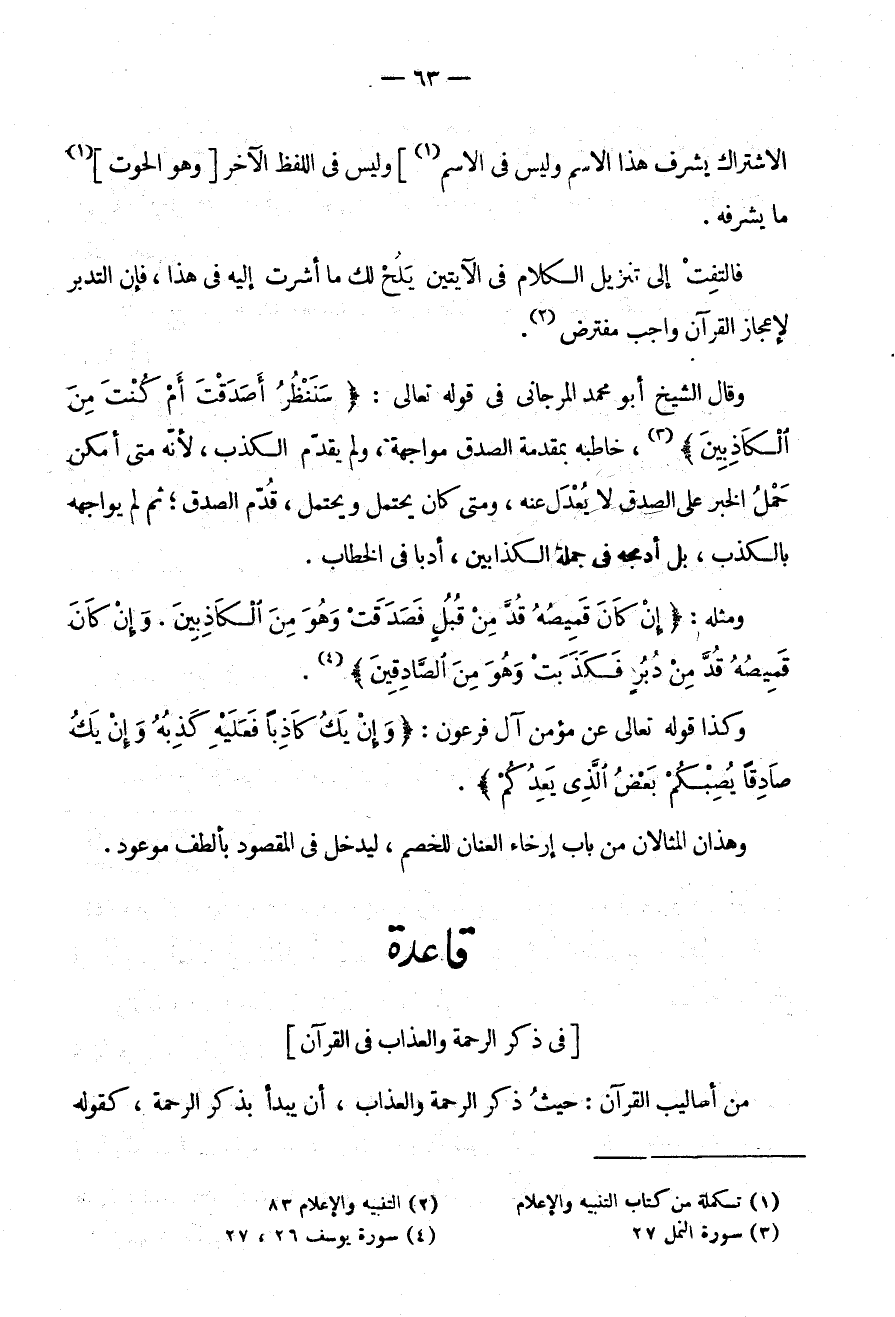 — ٦٣ —
الاشتراك يشرف هذا الاسم وليس فى الاسم(١) ] وليس فى اللفظ الآخر [ وهو الحوت ](١)
ما يشرفه .
فالتفِتْ إلى تنزيل الـكلام فى الآيتين يَلُحْ لك ما أشرت إليه فى هذا ، فإن التدبر
لإعجاز القرآن واجب مفترض(٢).
وقال الشيخ أبو محمد المرجانى فى قوله تعالى : ﴿ سَنَنْظُرُ أَصَدَقْتَ أَمْ كُنْتَ مِنَ
ٱلْـكَاذِبِينَ ﴾(٣) ، خاطبه بمقدمة الصدق مواجهة ، ولم يقدّم الـكذب ، لأنّه متى أمكن
حَمْلُ الخبر على الصدق لا يُعْدَل عنه ، ومتى كان يحتمل ويحتمل ، قُدّم الصدق ؛ ثم لم يواجهه
بالـكذب ، بل أدمجه فى جملة الـكذابين ، أدبا فى الخطاب .
ومثله : ﴿ إِنْ كَانَ قَمِيصُهُ قُدَّ مِنْ قُبُلٍ فَصَدَقَتْ وَهُوَ مِنَ ٱلْـكَاذِبِينَ . وَإِنْ كَانَ
قَمِيصُهُ قُدَّ مِنْ دُبُرٍ فَـكَذَبَتْ وَهُوَ مِنَ ٱلصَّادِقِينَ ﴾(٤) .
وكذا قوله تعالى عن مؤمن آل فرعون : ﴿ وَإِنْ يَكُ كَاذِباً فَعَلَيْهِ كَذِبُهُ وَإِنْ يَكُ
صَادِقاً يُصِبْـكُمْ بَعْضُ ٱلَّذِى يَعِدُكُمْ ﴾ .
وهذان المثالان من باب إرخاء العنان للخصم ، ليدخل فى المقصود بألطف موعود .
قاعدة
[ فى ذكر الرحمة والعذاب فى القرآن ]
من أصاليب القرآن : حيثُ ذكر الرحمة والعذاب ، أن يبدأ بذكر الرحمة ، كـقوله
(١) تـكملة من كتاب التنبيه والإعلام (٢) التنبيه والإعلام ٨٣
(٣) سورة النمل ٢٧ (٤) سورة يوسف ٢٦ ، ٢٧